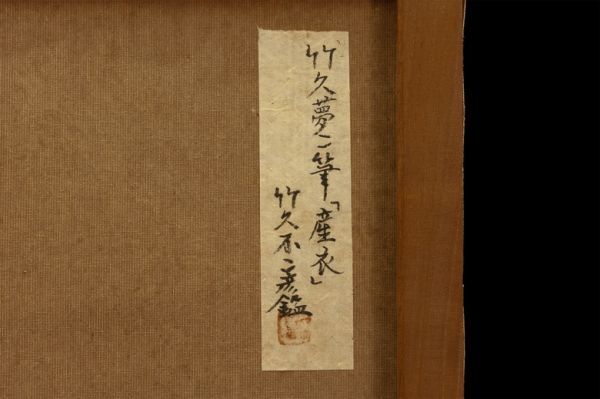 竹久夢二筆「産衣」
竹久不二彦鑑